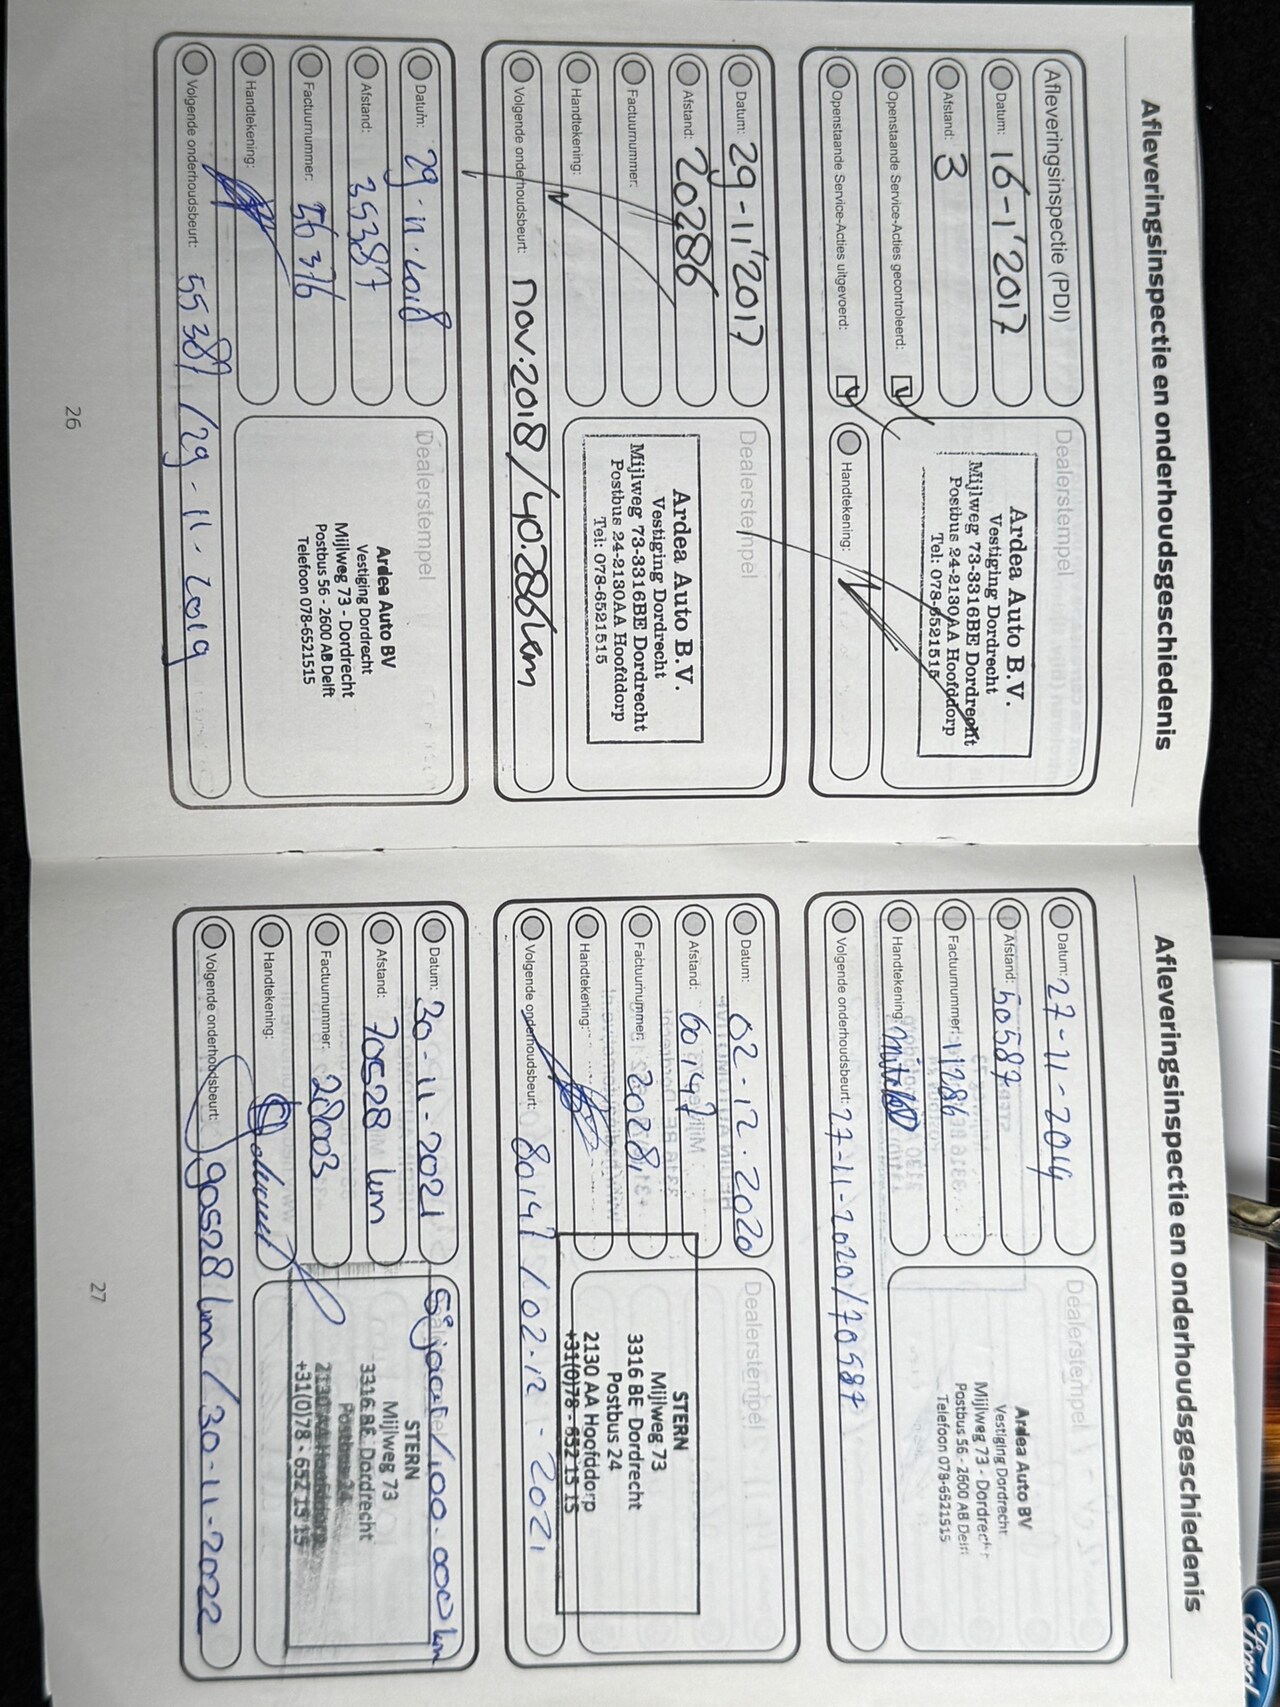 Afleveringsinspectie en onderhoudsgeschiedenis
Afleveringsinspectie (PDI)
Datum: 16-1'2017
Afstand: 3
Openstaande Service-Acties gecontroleerd:
Openstaande Service-Acties uitgevoerd:
Dealerstempel
Ardea Auto B.V.
Vestiging Dordrecht
Mijlweg 73-3316BE Dordrecht
Postbus 24-2130AA Hoofddorp
Tel: 078-6521515
Handtekening:
Datum: 29-11'2017
Afstand: 20286
Factuurnummer:
Handtekening:
Volgende onderhoudsbeurt: nov.2018/40.286km
Dealerstempel
Ardea Auto B.V.
Vestiging Dordrecht
Mijlweg 73-3316BE Dordrecht
Postbus 24-2130AA Hoofddorp
Tel: 078-6521515
Datum: 29-11-2018
Afstand: 35387
Factuurnummer: 56376
Handtekening:
Volgende onderhoudsbeurt: 55387 / 29-11-2019
Dealerstempel
Ardea Auto BV
Vestiging Dordrecht
Mijlweg 73 - Dordrecht
Postbus 56 - 2600 AB Delft
Telefoon 078-6521515
26
Afleveringsinspectie en onderhoudsgeschiedenis
Datum: 27-11-2019
Afstand: 50587
Factuurnummer: 11286
Handtekening:
Volgende onderhoudsbeurt: 27-11-2020/70587
Dealerstempel
Ardea Auto BV
Vestiging Dordrecht
Mijlweg 73 - Dordrecht
Postbus 56 - 2600 AB Delft
Telefoon 078-6521515
Datum: 02-12-2020
Afstand: 60147
Factuurnummer: 20281
Handtekening:
Volgende onderhoudsbeurt: 80147 / 02-12-2021
Dealerstempel
STERN
Mijlweg 73
3316 BE Dordrecht
Postbus 24
2130 AA Hoofddorp
+31(0)78 - 652 15 15
Datum: 30-11-2021
Afstand: 70528 km
Factuurnummer: 28003
Handtekening:
Volgende onderhoudsbeurt: 90528 km / 30-11-2022
5e jaars/100.000 km
STERN
Mijlweg 73
3316 BE Dordrecht
Postbus 24
2130 AA Hoofddorp
+31(0)78 - 652 15 15
27
Ford